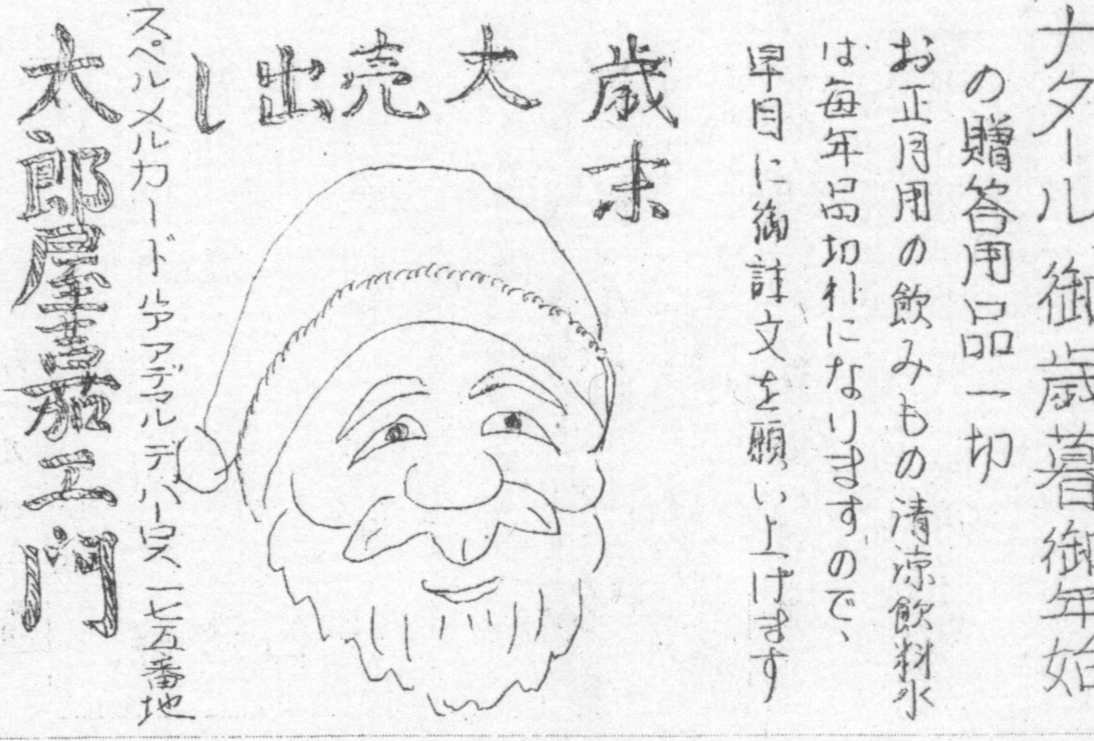 ナタール、御歳暮御年始
の贈答用品一切
お正月用の飲みもの清涼飲料水
は毎年品切れになりますので、
早目に御註文を願い上げます
歳末
大売出し
スペルメルカード ルア アデマル デ バーロス 一七五番地
太郎屋喜猫エ門